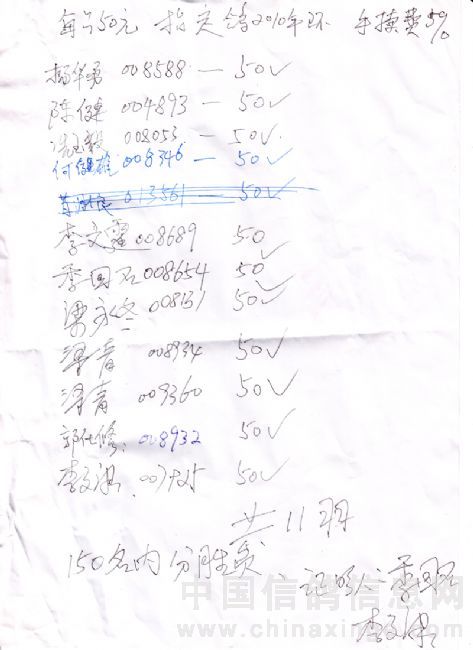 每号50元 指定鸽2010年环 手续费5%
杨华勇 008588 — 50√
陈健 004893 — 50√
冼毅 008053 — 50√
何健雄 008346 — 50√
013561 50√
李文霞 008689 50√
季国石 008654 50√
梁永冬 008131 50√
梁青 008934 50√
梁青 009360 50√
郭仕修 008932 50√
李文洪 50√
共11羽
150名内分胜负
证明人 季国石
李文洪
中国信鸽信息网
www.chinaxinge.com